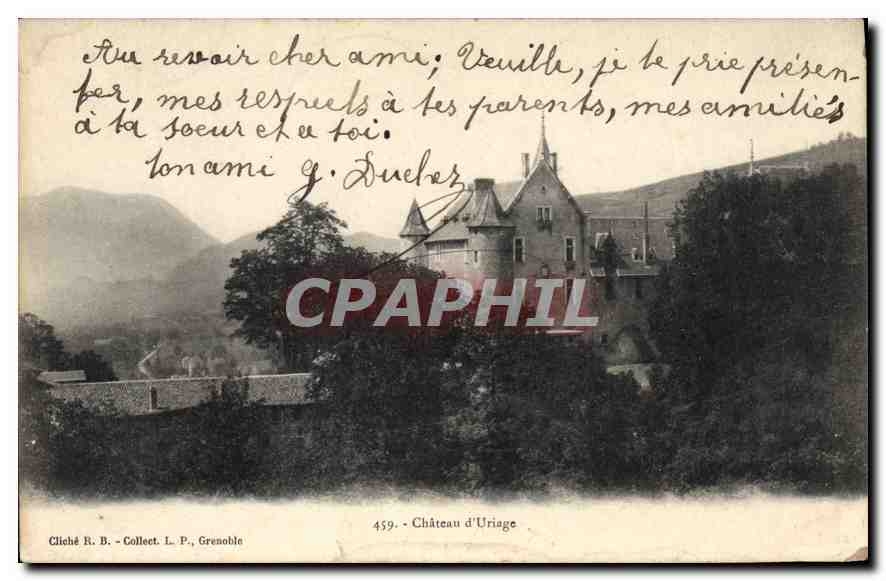 Au revoir cher ami; Veuille, je te prie présen-
ter, mes respects à tes parents, mes amitiés
à ta soeur et a toi.
ton ami G. Duchez
CPAPHIL
459. - Château d'Uriage
Cliché R. B. - Collect. L. P., Grenoble